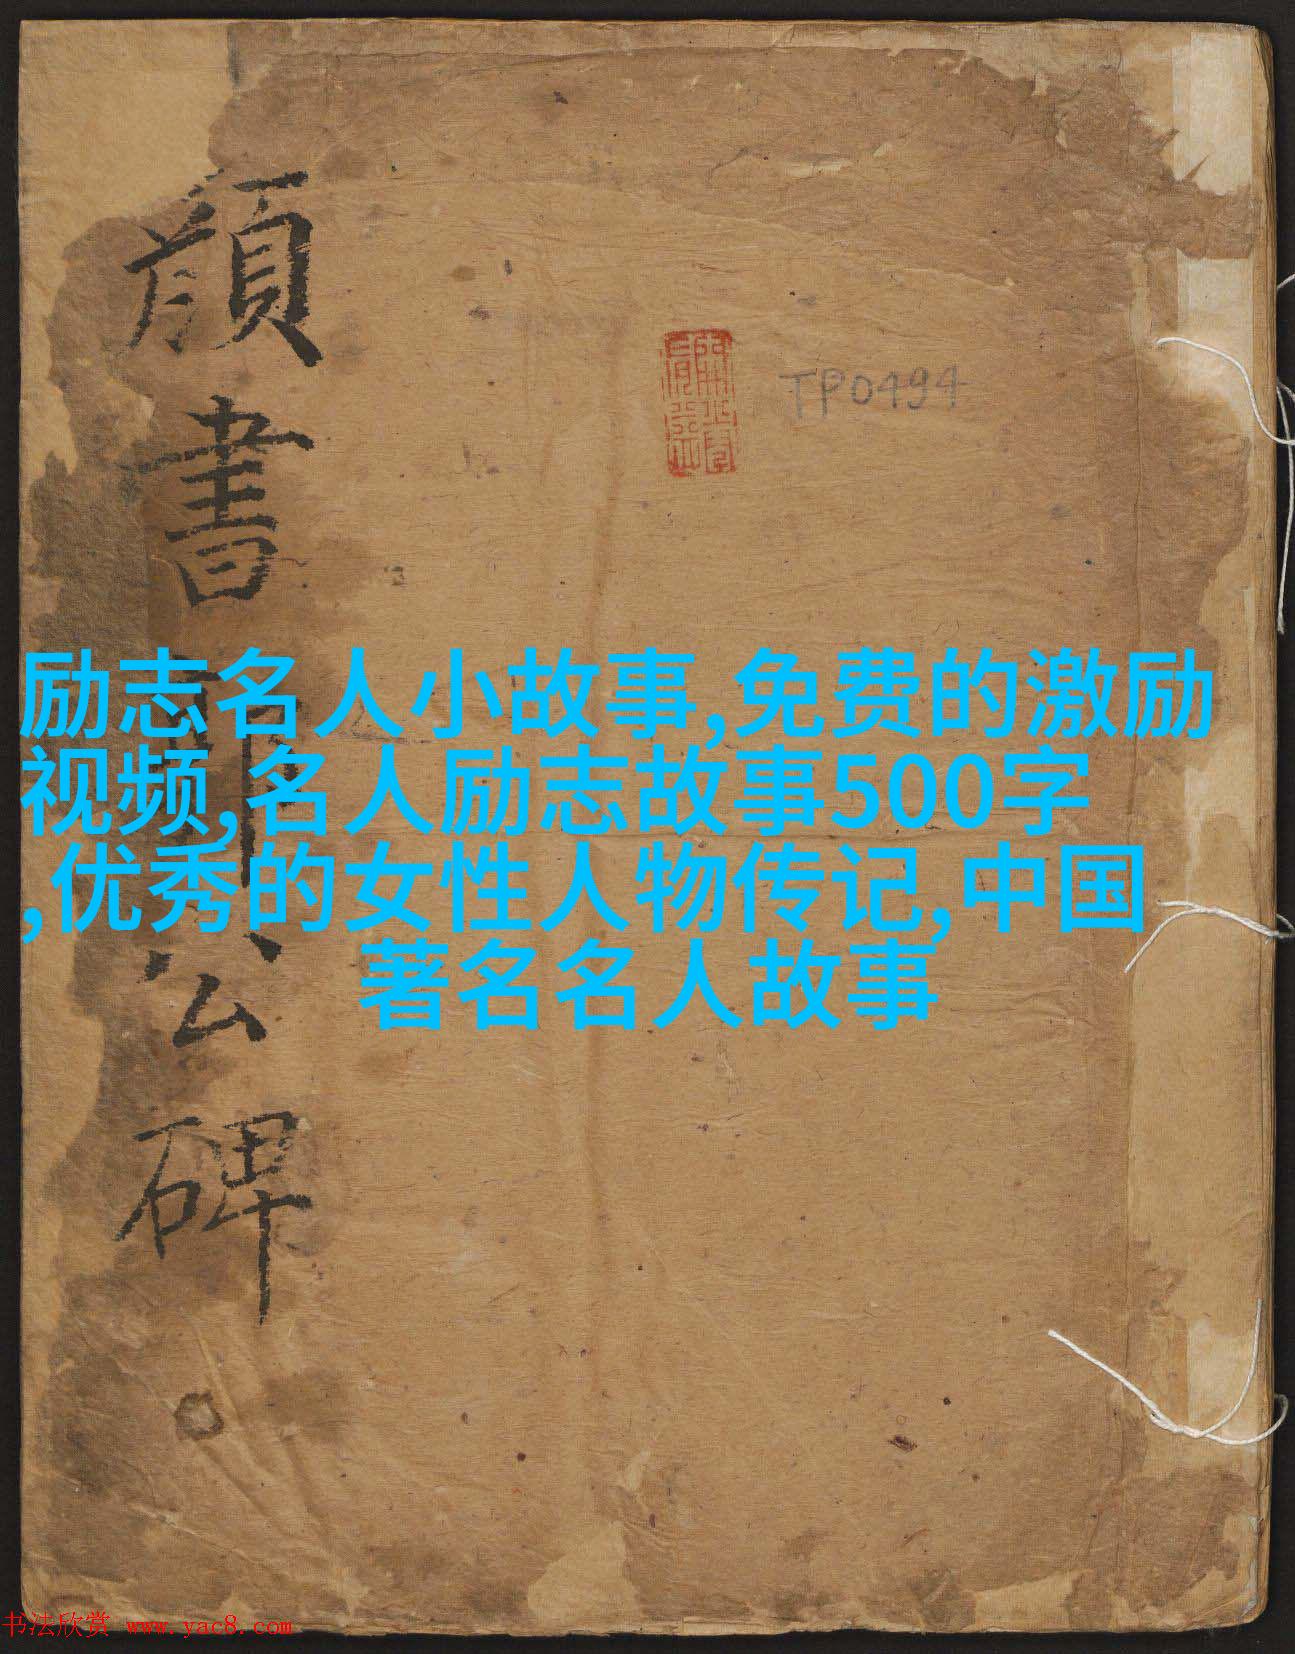 顔書郭公碑
TP0494
励志名人小故事,免费的激励
视频,名人励志故事500字
,优秀的女性人物传记,中国
著名名人故事
书法欣赏 www.yac8.com